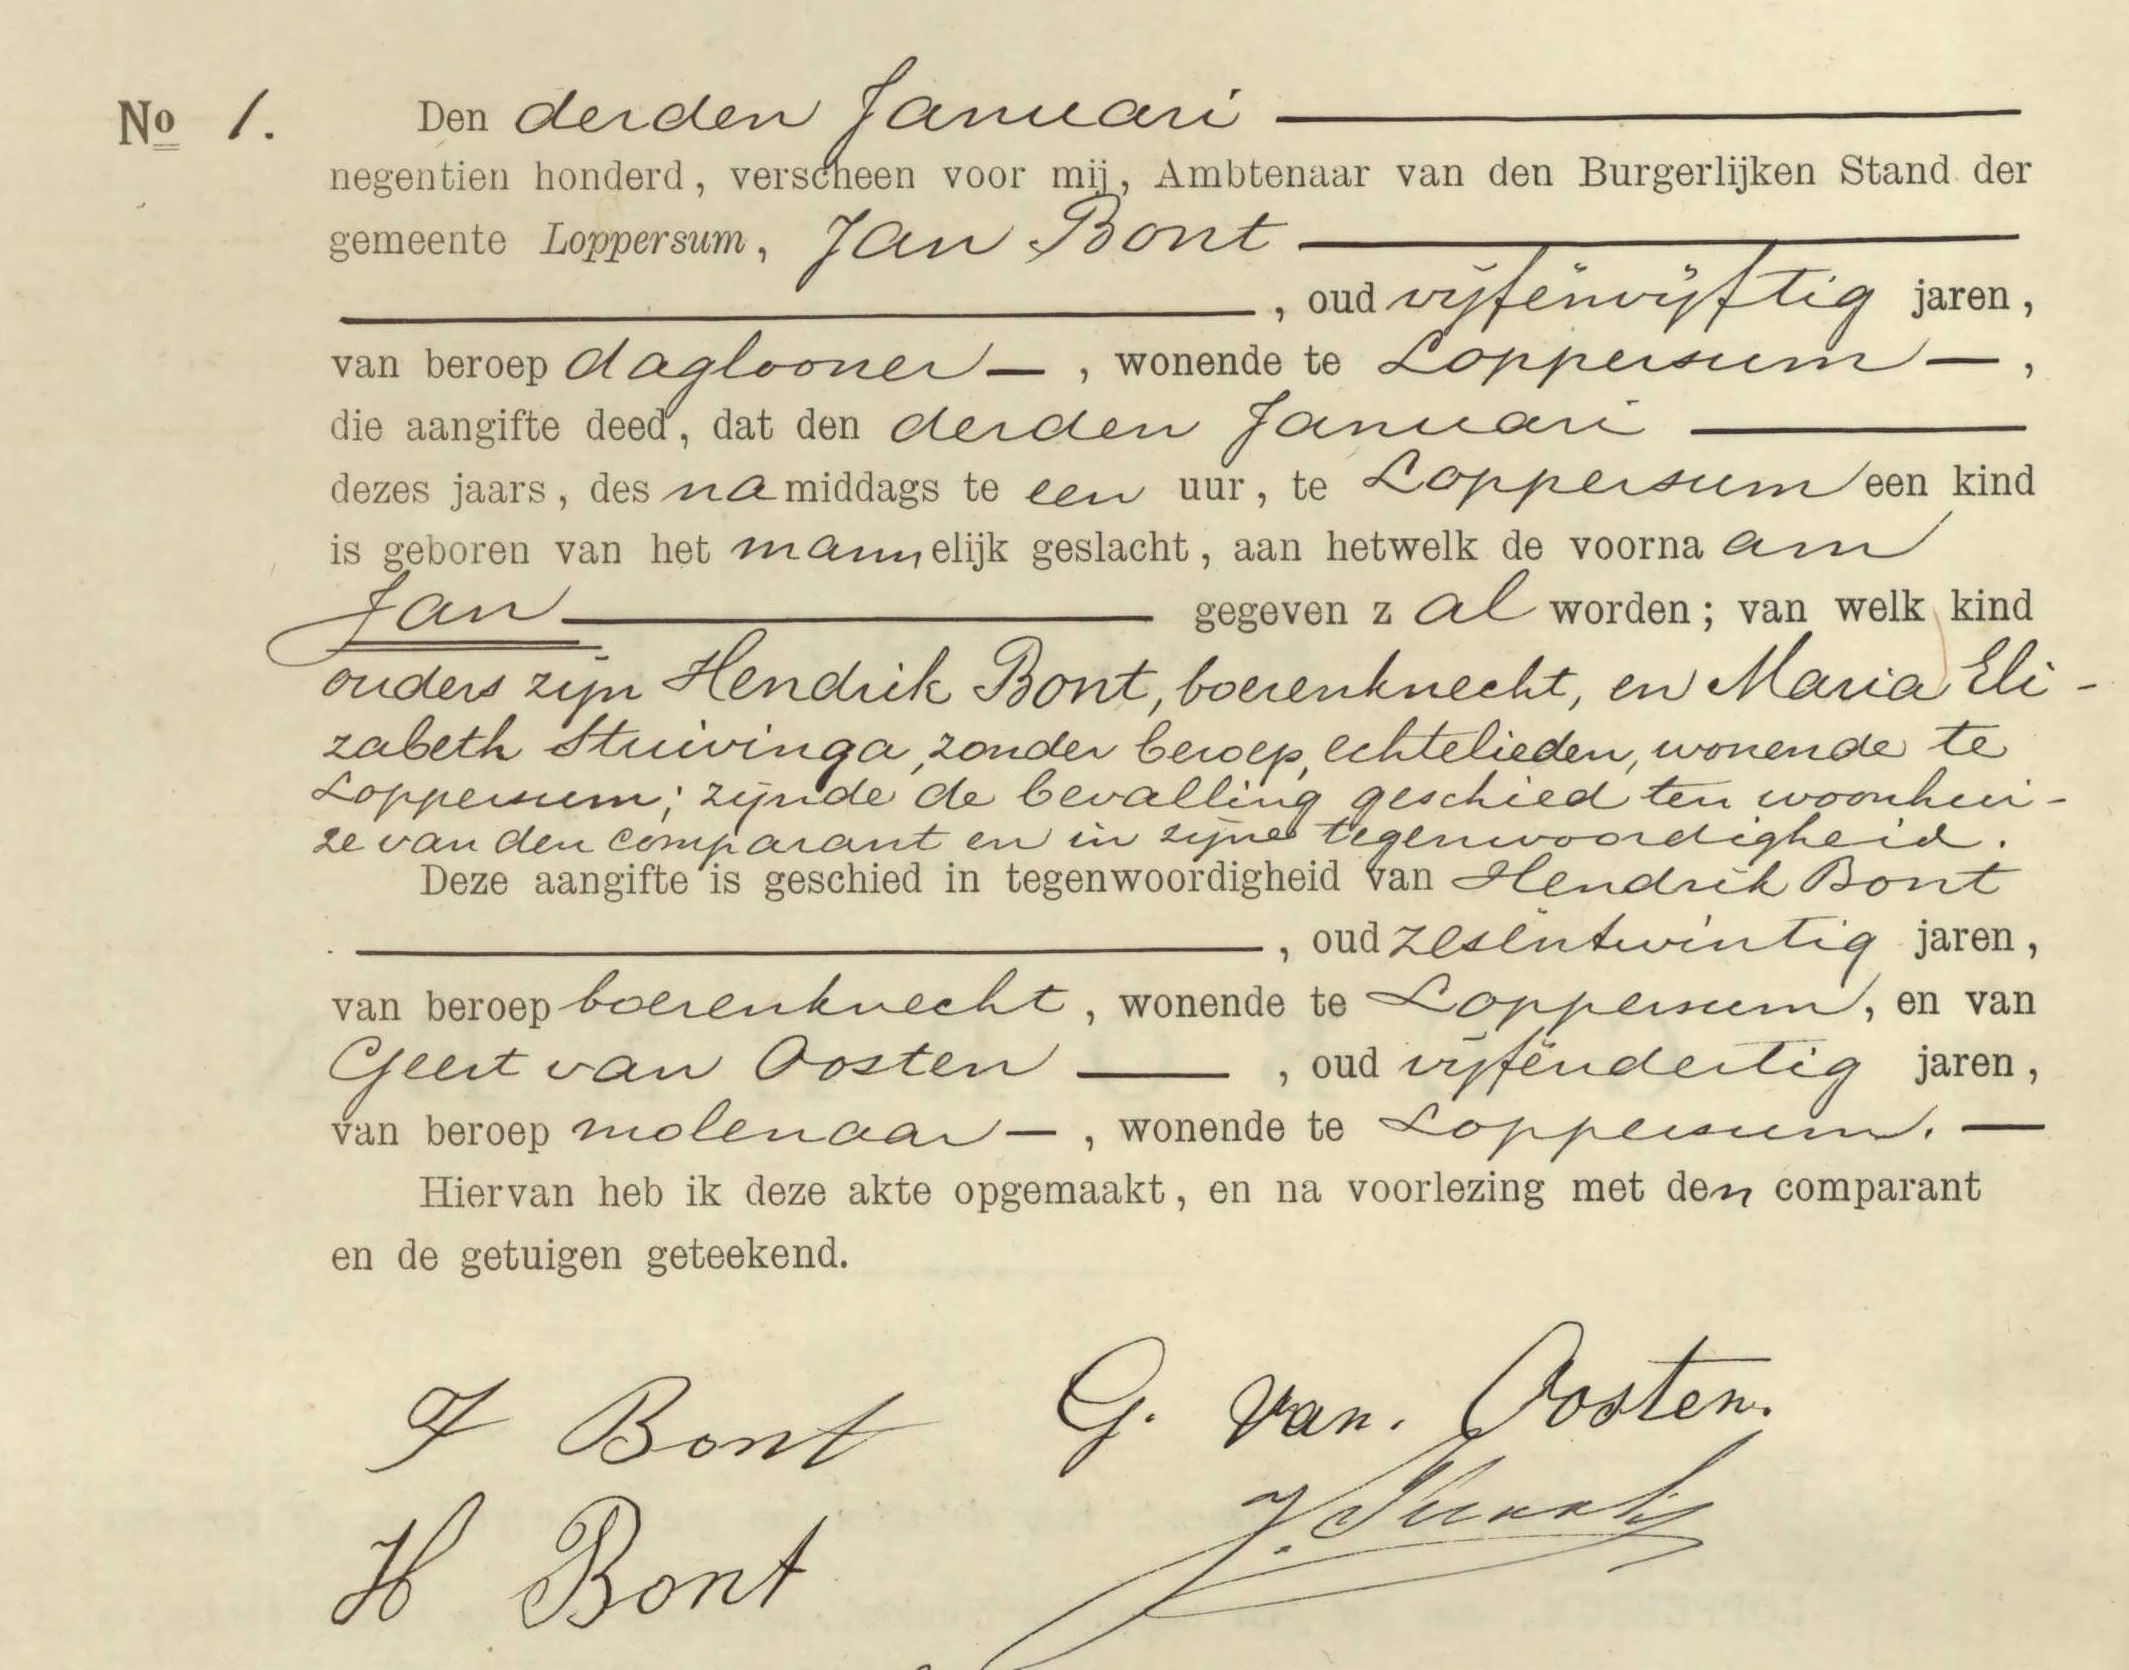 No 1. Den derden Januari
negentien honderd, verscheen voor mij, Ambtenaar van den Burgerlijken Stand der
gemeente Loppersum, Jan Bont
, oud vijfenvijftig jaren,
van beroep daglooner, wonende te Loppersum,
die aangifte deed, dat den derden Januari
dezes jaars, des namiddags te een uur, te Loppersum een kind
is geboren van het mannelijk geslacht, aan hetwelk de voornaam
Jan gegeven zal worden; van welk kind
ouders zijn Hendrik Bont, boerenknecht, en Maria Eli-
zabeth Stuivinga, zonder beroep, echtelieden, wonende te
Loppersum; zijnde de bevalling geschied ten woonhui-
ze van den comparant en in zijne tegenwoordigheid.
Deze aangifte is geschied in tegenwoordigheid van Hendrik Bont
, oud zesëntwintig jaren,
van beroep boerenknecht, wonende te Loppersum, en van
Geert van Oosten, oud vijfëndertig jaren,
van beroep molenaar, wonende te Loppersum.
Hiervan heb ik deze akte opgemaakt, en na voorlezing met den comparant
en de getuigen geteekend.
J Bont G. van. Oosten.
H Bont J.